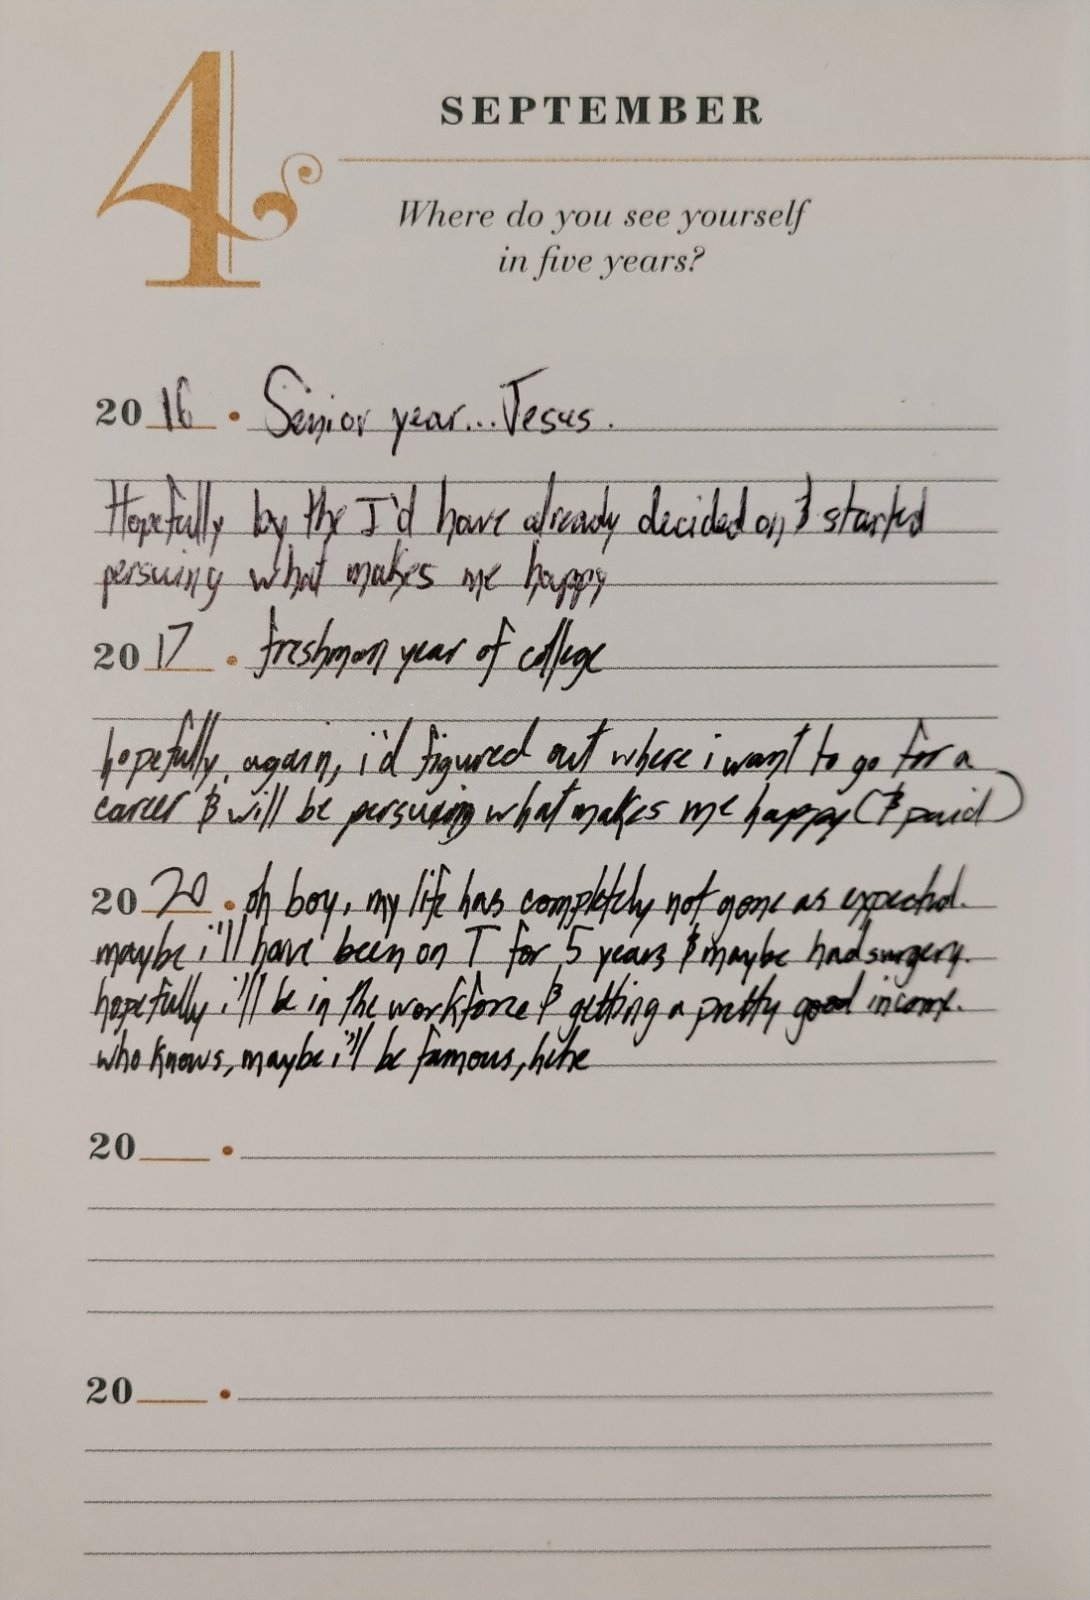 4 SEPTEMBER
Where do you see yourself
in five years?
2016 • Senior year...Jesus.
Hopefully by the I'd have already decided on & started
persuing what makes me happy
2017 • freshman year of college
hopefully, again, i'd figured out where i want to go for a
career & will be persuing what makes me happy (& paid)
2020 • oh boy, my life has completely not gone as expected.
maybe i'll have been on T for 5 years & maybe had surgery.
hopefully i'll be in the workforce & getting a pretty good income.
who knows, maybe i'll be famous, hehe
20__ •
20__ •